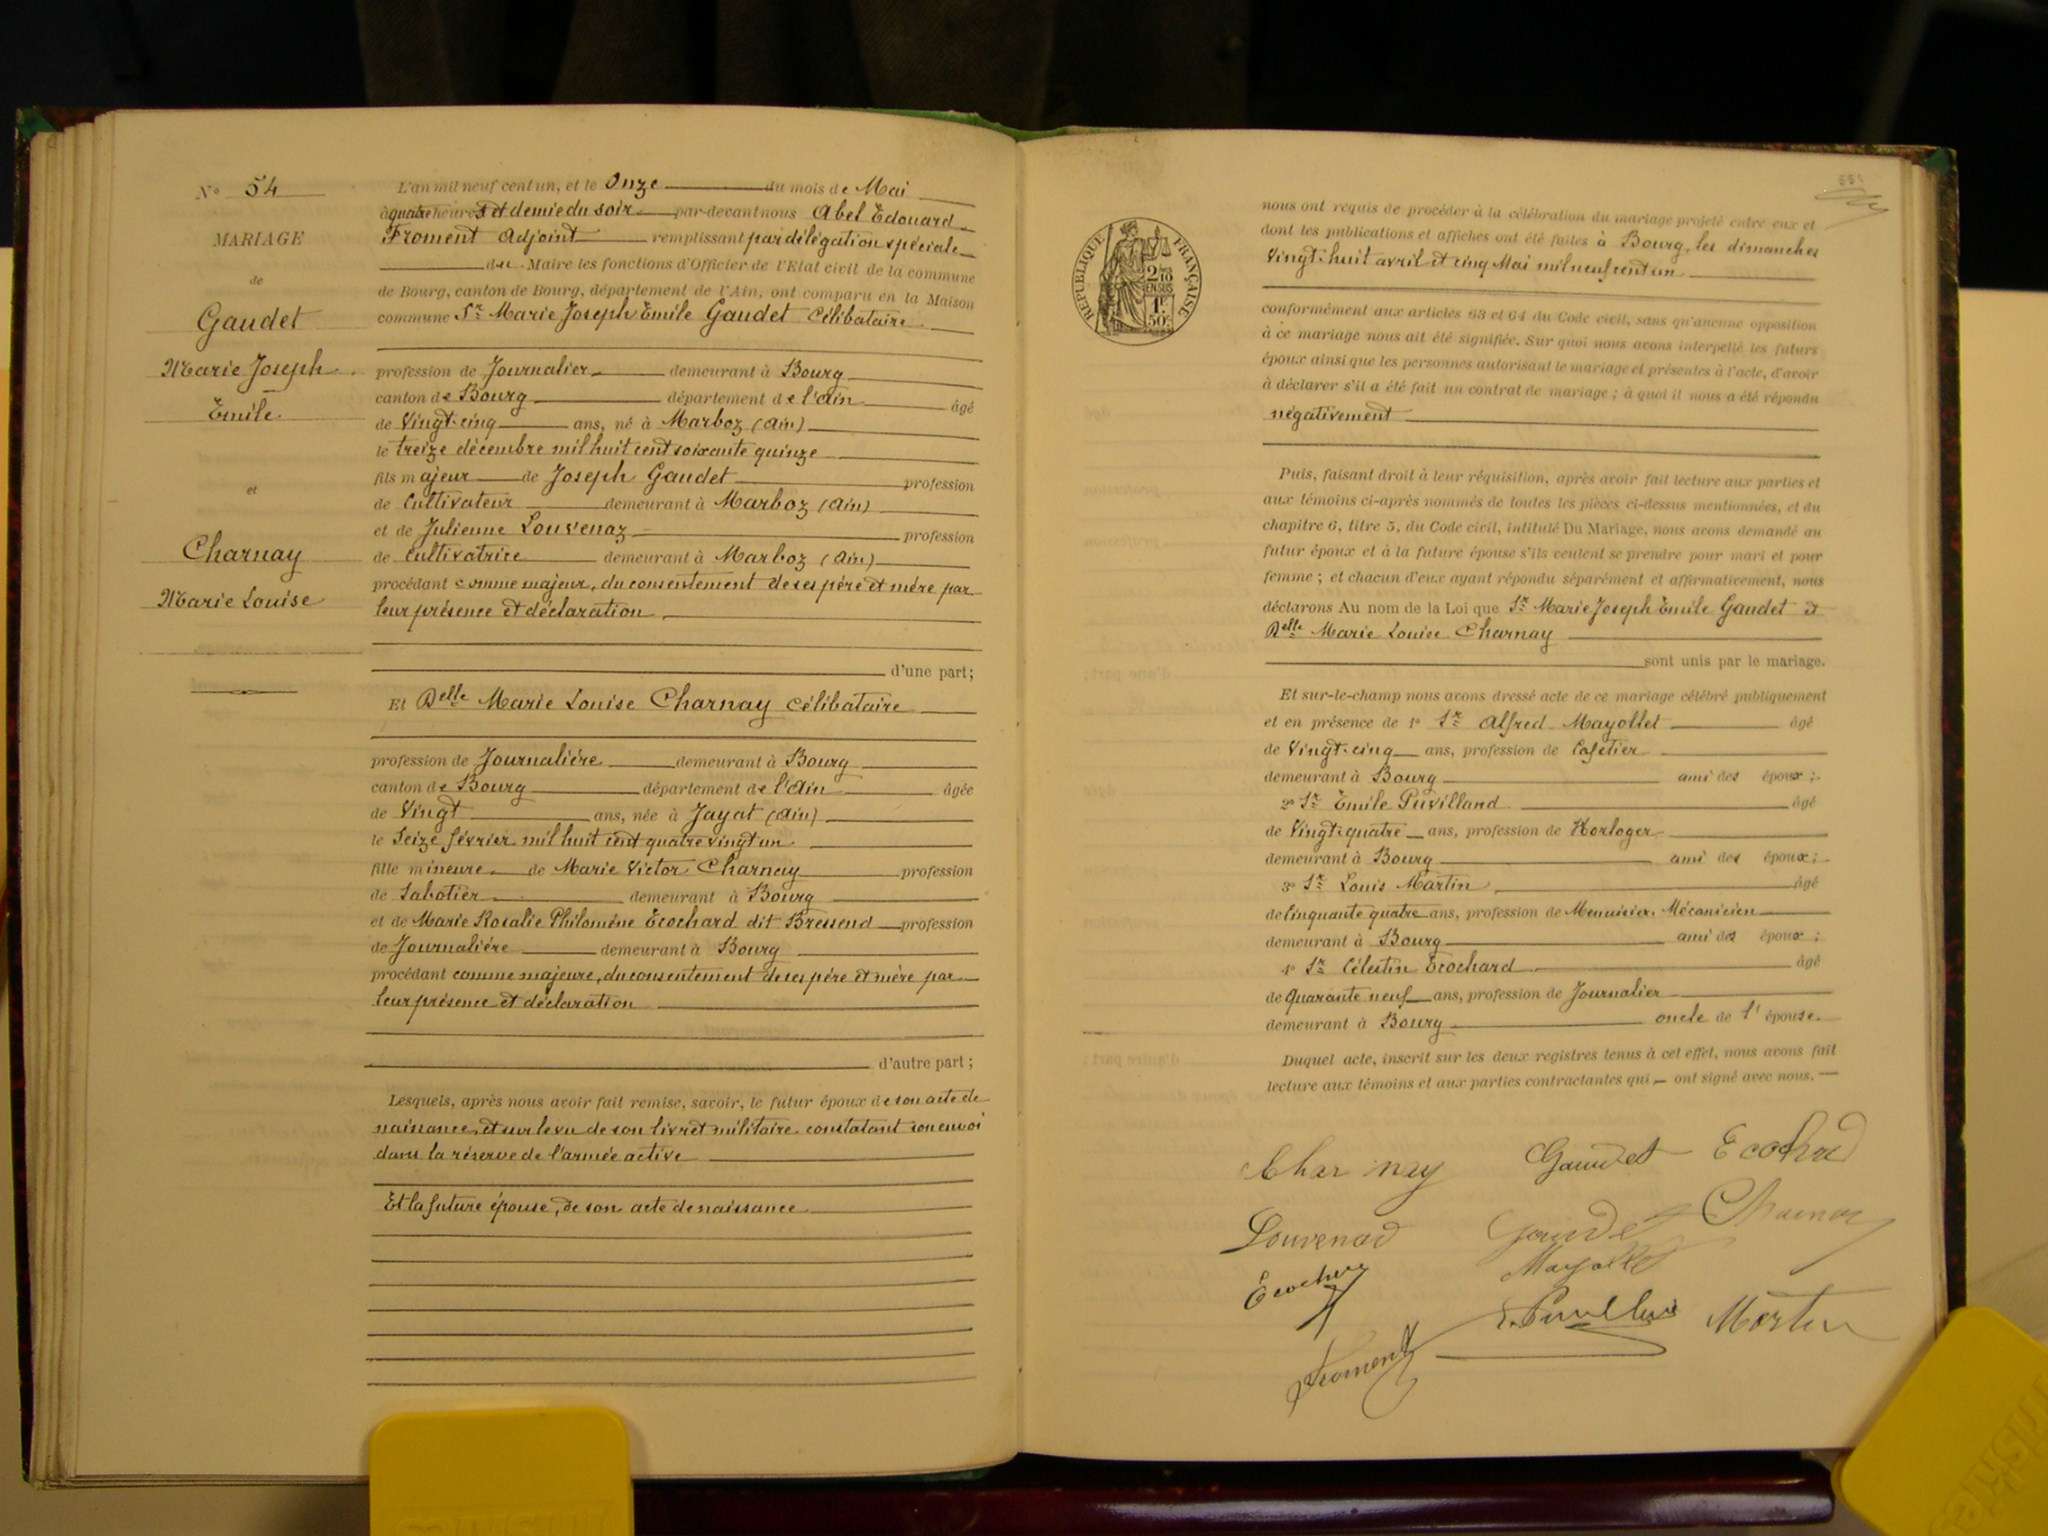 N° 54
MARIAGE
de
Gaudet
Marie Joseph
Emile
et
Charnay
Marie Louise
L'an mil neuf cent un, et le Onze du mois de Mai
à quatre heures et demie du soir par-devant nous Abel Edouard
Froment Adjoint remplissant par délégation spéciale
du Maire les fonctions d'Officier de l'Etat civil de la commune
de Bourg, canton de Bourg, département de l'Ain, ont comparu en la Maison
commune Sr Marie Joseph Emile Gaudet Célibataire
profession de Journalier demeurant à Bourg
canton de Bourg département de l'Ain âgé
de Vingt-cinq ans, né à Marboz (Ain)
le treize décembre mil huit cent soixante quinze
fils majeur de Joseph Gaudet profession
de Cultivateur demeurant à Marboz (Ain)
et de Julienne Louvenaz profession
de Cultivatrice demeurant à Marboz (Ain)
procédant comme majeur, du consentement de ses père et mère par
leur présence et déclaration
d'une part;
Et Delle Marie Louise Charnay Célibataire
profession de Journalière demeurant à Bourg
canton de Bourg département de l'Ain âgée
de Vingt ans, née à Jayat (Ain)
le Seize février mil huit cent quatre vingt un
fille mineure de Marie Victor Charnay profession
de Sabotier demeurant à Bourg
et de Marie Rosalie Philomène Ecochard dit Bressend profession
de Journalière demeurant à Bourg
procédant comme majeure, du consentement de ses père et mère par
leur présence et déclaration
d'autre part;
Lesquels, après nous avoir fait remise, savoir, le futur époux de son acte de
naissance, et sur le vu de son livret militaire constatant son envoi
dans la réserve de l'armée active
Et la future épouse, de son acte de naissance
RÉPUBLIQUE FRANÇAISE
2/10
EN SUS
1F
50c
nous ont requis de procéder à la célébration du mariage projeté entre eux et
dont les publications et affiches ont été faites à Bourg, les dimanches
Vingt-huit avril et cinq Mai mil neuf cent un
conformément aux articles 63 et 64 du Code civil, sans qu'aucune opposition
à ce mariage nous ait été signifiée. Sur quoi nous avons interpellé les futurs
époux ainsi que les personnes autorisant le mariage et présentes à l'acte, d'avoir
à déclarer s'il a été fait un contrat de mariage ; à quoi il nous a été répondu
négativement
Puis, faisant droit à leur réquisition, après avoir fait lecture aux parties et
aux témoins ci-après nommés de toutes les pièces ci-dessus mentionnées, et du
chapitre 6, titre 5, du Code civil, intitulé Du Mariage, nous avons demandé au
futur époux et à la future épouse s'ils veulent se prendre pour mari et pour
femme ; et chacun d'eux ayant répondu séparément et affirmativement, nous
déclarons Au nom de la Loi que Sr Marie Joseph Emile Gaudet et
Delle Marie Louise Charnay
sont unis par le mariage.
Et sur-le-champ nous avons dressé acte de ce mariage célébré publiquement
et en présence de 1° Sr Alfred Mayollet âgé
de Vingt-cinq ans, profession de Cafetier
demeurant à Bourg ami des époux ;
2° Sr Emile Puvilland âgé
de Vingt-quatre ans, profession de Horloger
demeurant à Bourg ami des époux ;
3° Sr Louis Martin âgé
de Cinquante quatre ans, profession de Menuisier Mécanicien
demeurant à Bourg ami des époux ;
4° Sr Célestin Ecochard âgé
de Quarante neuf ans, profession de Journalier
demeurant à Bourg oncle de l'épouse.
Duquel acte, inscrit sur les deux registres tenus à cet effet, nous avons fait
lecture aux témoins et aux parties contractantes qui ont signé avec nous.
Charnay Gaudet Ecochard
Louvenad Gaudet Charnay
Mayollet
Froment Martin